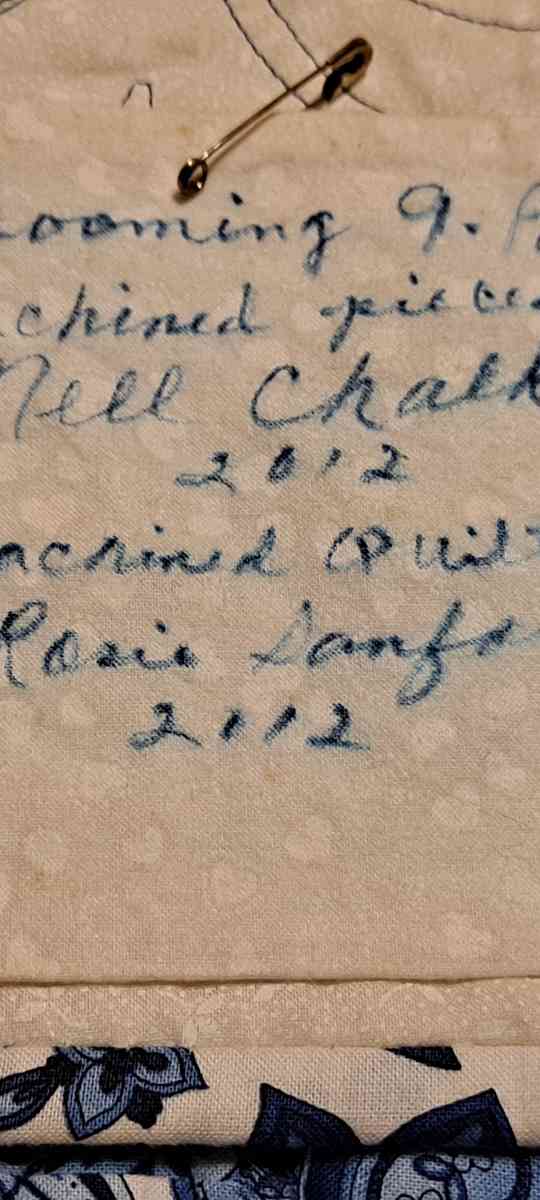 ooming 9. P
chined piece
Nell Chalk
2012
achined Quilt
Rosie Sanfo
2012